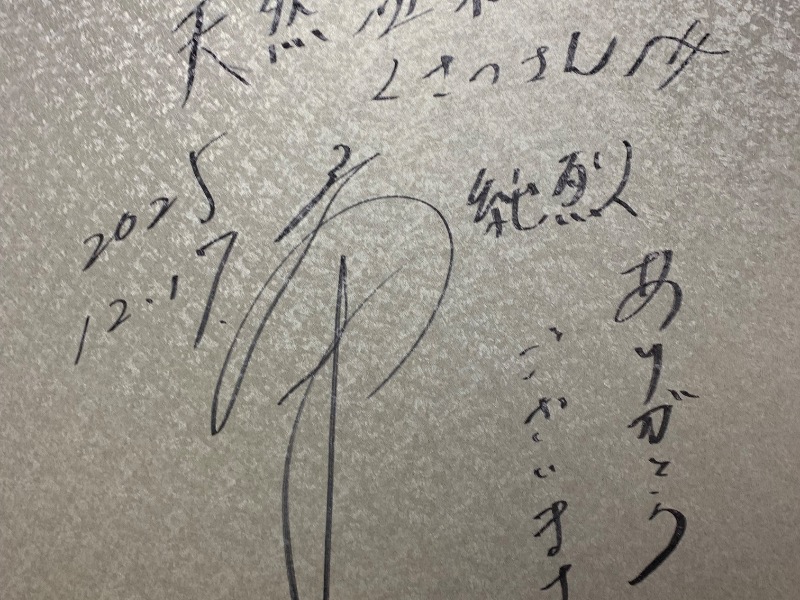 天然温泉
くさつさん江
純烈
ありがとう
ございます
2025
12.17.